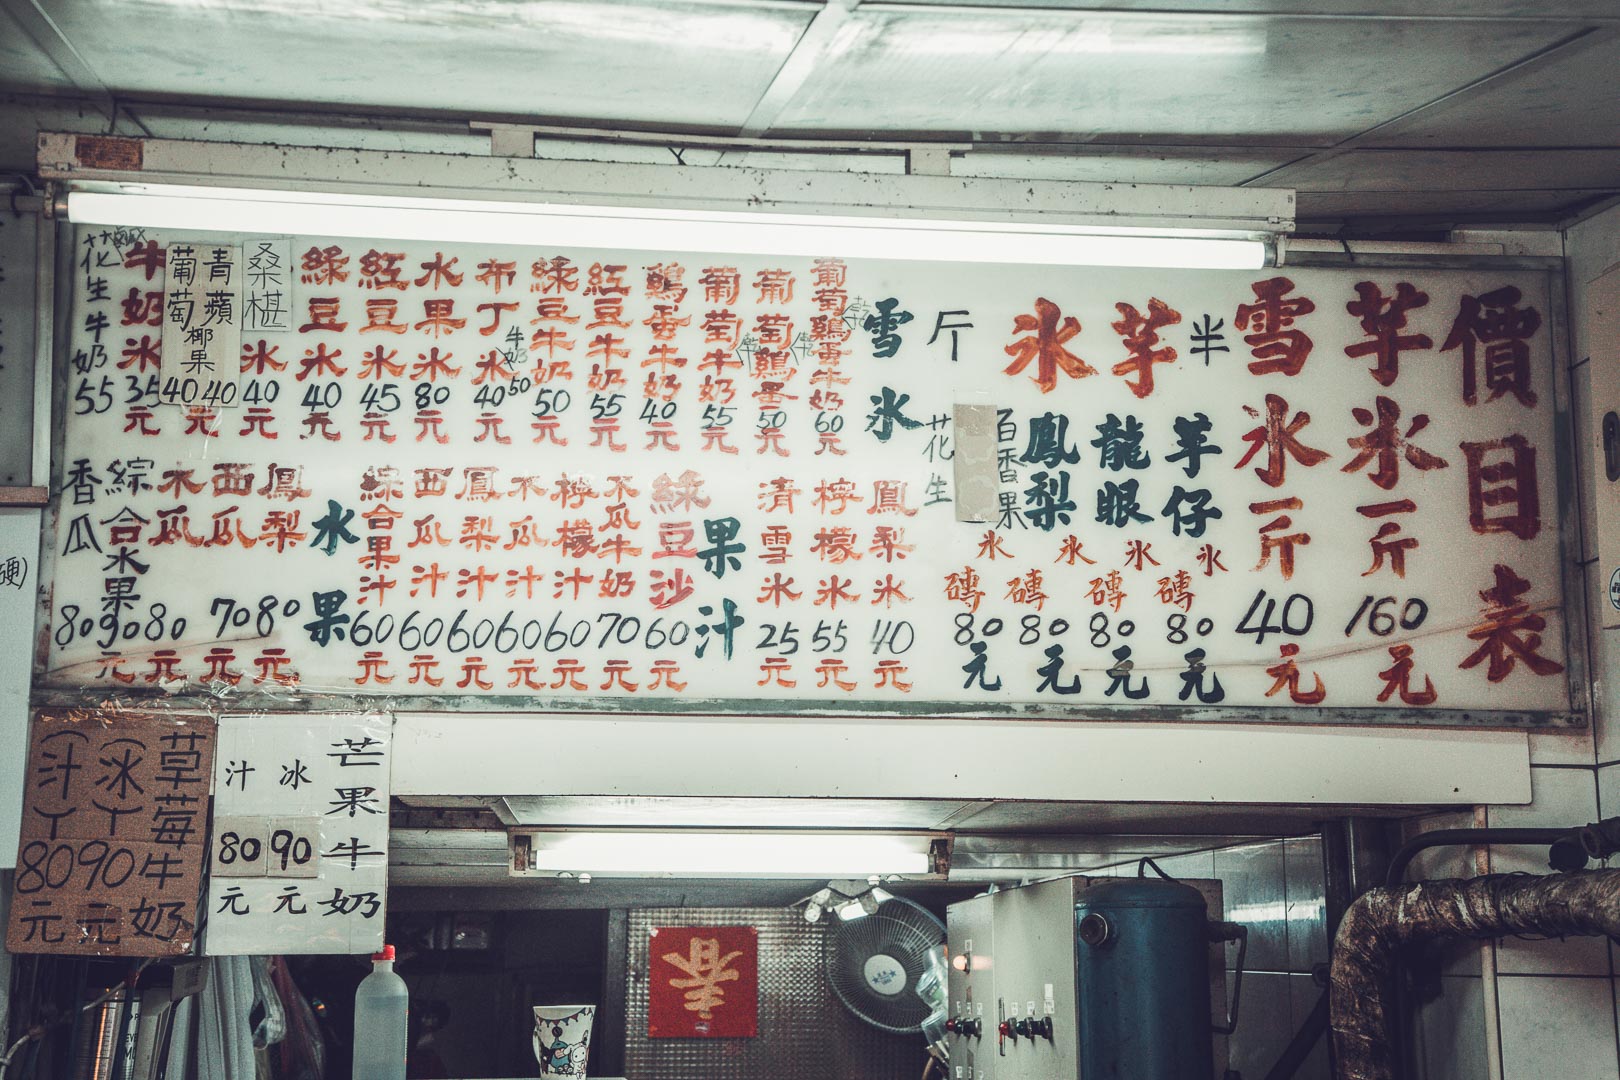 價目表
芋冰一斤160元
雪冰一斤40元
半斤芋冰
芋仔冰磚80元
龍眼冰磚80元
鳳梨冰磚80元
百香果
花生冰磚80元
雪冰
葡萄鷄蛋牛奶60元
葡萄鷄蛋50元
葡萄牛奶55元
鷄蛋牛奶40元
紅豆牛奶55元
綠豆牛奶50元
布丁冰40元
牛奶50
水果冰80元
紅豆冰45元
綠豆冰40元
桑椹冰40元
青蘋
椰果40元
葡萄40
牛奶冰35元
花生牛奶55
鳳梨冰40元
檸檬冰55元
清雪冰25元
果汁
綠豆沙60元
木瓜牛奶70元
檸檬汁60元
木瓜汁60元
鳳梨汁60元
西瓜汁60元
綜合果汁60元
水果
鳳梨80元
西瓜70元
木瓜80元
綜合水果90元
香瓜80
芒果牛奶
冰90元
汁80元
草莓牛奶
(冰)90元
(汁)80元
春